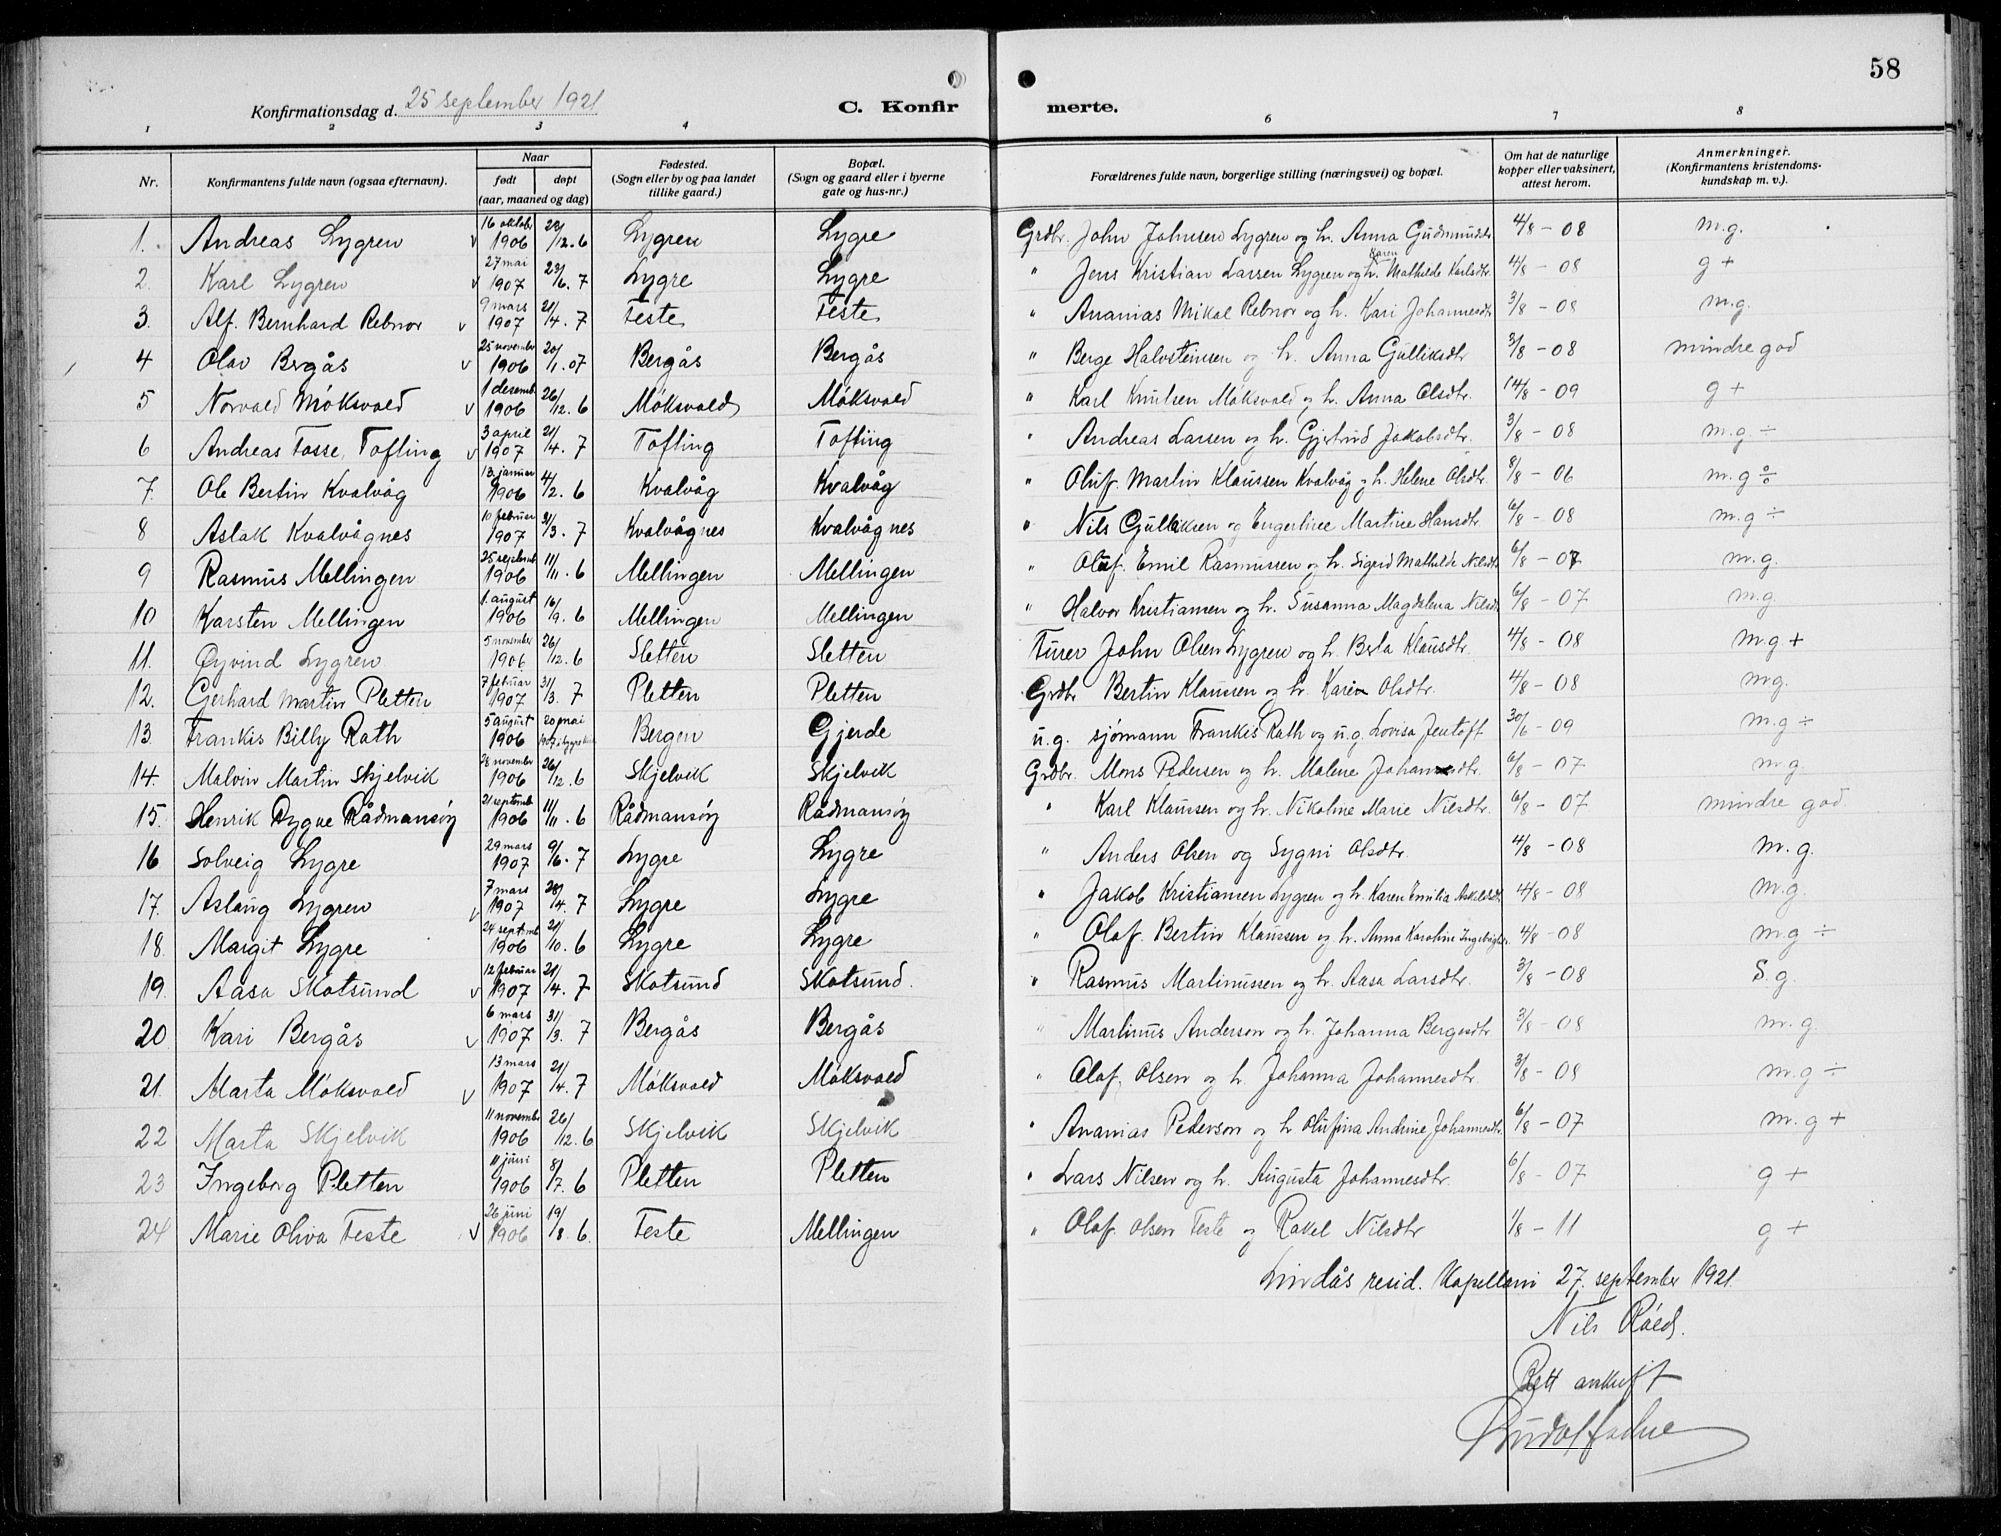 58
Konfirmationsdag d. 25 september 1921 C. Konfir merte.
1 2 3 4 6 7 8
Nr. Konfirmantens fulde navn (ogsaa efternavn). Naar født døpt (aar, maaned og dag) Fødested. (Sogn eller by og paa landet tillike gaard.) Bopæl. (Sogn og gaard eller i byerne gate og hus-nr.) Forældrenes fulde navn, borgerlige stilling (næringsvei) og bopæl. Om hat de naturlige kopper eller vaksinert, attest herom. Anmerkninger. (Konfirmantens kristendoms-kundskap m. v.).
1. Andreas Lygren v 16 oktobr 1906 28/12. 6 Lygren Lygre Grdbr. John Johnsen Lygren og h. Anna Gudmundsdr 4/8 - 08 m.g.
2. Karl Lygren v 27 mai 1907 23/6. 7 Lygre Lygre " Jens Kristian Larsen Lygren og h. Karen Mathilde Karlsdtr. 4/8 - 08 g +
3. Alf. Bernhard Rebnor v 9 mars 1907 21/4. 7 Feste Feste " Ananias Mikal Rebnor og h. Kari Johannesdtr 3/8 - 08 m.g.
4 Olav Bergås v 25 november 1906 20/1. 07 Bergås Bergås " Berge Halvsteinsen og h. Anna Gulliksdtr 3/8 - 08 mindre god
5 Norvald Móksvold v 1 desemb. 1906 26/12. 6 Móksvold Móksvold " Karl Knutsen Móksvold og h. Anna Olsdtr. 14/8 - 09 g +
6 Andreas Fosse, Tofting v 3 april 1907 21/4. 7 Tofting Tofting " Andreas Larsen og h. Gjertrud Jakobsdtr. 3/8 - 08 m.g ÷
7. Ole Bertin Kvalvåg 13 januar 1906 4/2. 6 Kvalvåg Kvalvåg " Oluf. Martin Klaussen Kvalvåg og h. Helene Olsdtr. 8/8 - 06 m.g ÷
8 Aslak Kvalvågnes 10 februar 1907 31/3. 7 Kvalvågnes Kvalvågnes " Nils Gulliksen og Engertine Martine Hansdtr 6/8 - 08 m.g ÷
9 Rasmus Mellingen 25 septemb. 1906 11/11. 6 Mellingen Mellingen " Oluf. Emil Rasmussen og h. Sigrid Mathilde Nilsdtr 6/8 - 07 m.g.
10 Karsten Mellingen 1. august 1906 16/9. 6 Mellingen Mellingen " Halvor Kristiansen og h. Susanna Magdalena Nilsdr 6/8 - 07 m.g
11. Øyvind Lygren 5 november 1906 26/12. 6 Sletten Sletten Furer John Olsen Lygren og h. Berta Klausdtr. 4/8 - 08 m.g +
12. Gerhard Martin Pletten 7 februar 1907 31/3. 7 Pletten Pletten Grdbr Bertin Klaussen og h. Karin Olsdtr. 4/8 - 08 m.g.
13. Frankis Billy Rath 5 august 1906 20 mai 1907 Bergen Gjerde u.g. sjømann Frankis Rath og u.g. Lovisa Jentoft 30/6 - 09 m.g ÷
14. Malvin Martin Skjelvik 28 november 1906 26/12. 6 Skjelvik Skjelvik Grdbr. Mons Pedersen og h. Malene Johannesdtr. 6/8 - 07 m.g.
15. Henrik Dygve Rådmansøy 21 septemb 1906 11/11. 6 Rådmansøy Rådmansøy " Karl Klaussen og h. Nikoline Marie Nilsdtr. 6/8 - 07 mindre god
16 Solveig Lygre 29 mars 1907 9/6. 7 Lygre Lygre " Anders Olsen og Sygni Olsdtr. 4/8 - 08 m.g.
17. Aslaug Lygren v 7 mars 1907 28/4. 7 Lygre Lygre " Jakob Kristiansen Lygren og h. Karen Emilia Askildsdtr 4/8 - 08 m.g.
18. Margit Lygre 24 septemb 1906 21/10. 6 Lygre Lygre " Olaf. Bertin Klaussen og h. Anna Karoline Ingebrigtsdr. 4/8 - 08 m.g ÷
19. Aasa Skotsund v 12 februar 1907 21/4. 7 Skotsund Skotsund. " Rasmus Martinussen og h. Aasa Larsdtr. 3/8 - 08 S. g.
20 Kari Bergås v 6 mars 1907 31/3. 7 Bergås Bergås " Martinus Anderson og h. Johanna Bergesdtr 3/8 - 08 m.g.
21. Marta Móksvold v 13 mars 1907 21/4. 7 Móksvold Móksvold " Olaf. Olsen og h. Johanna Johannesdtr. 3/8 - 08 m.g ÷
22 Marta Skjelvik 11 novembr 1906 26/12. 6 Skjelvik Skjelvik " Ananias Pederson og h Olufina Andrine Johannesdtr. 6/8 - 07 m.g +
23 Ingeborg Pletten 11 juni 1906 8/7. 6 Pletten Pletten " Lars Nilsen og h. Augusta Johannesdtr. 6/8 - 07 g +
24 Marie Oliva Feste v 26 juni 1906 19/8. 6. Feste Mellingen " Olaf. Olsen Feste og Rakel Nilsdtr 1/8 - 11 g +
Lindås resid. Kapellani 27. september 1921.
Nils Róed.
Rett avskrift